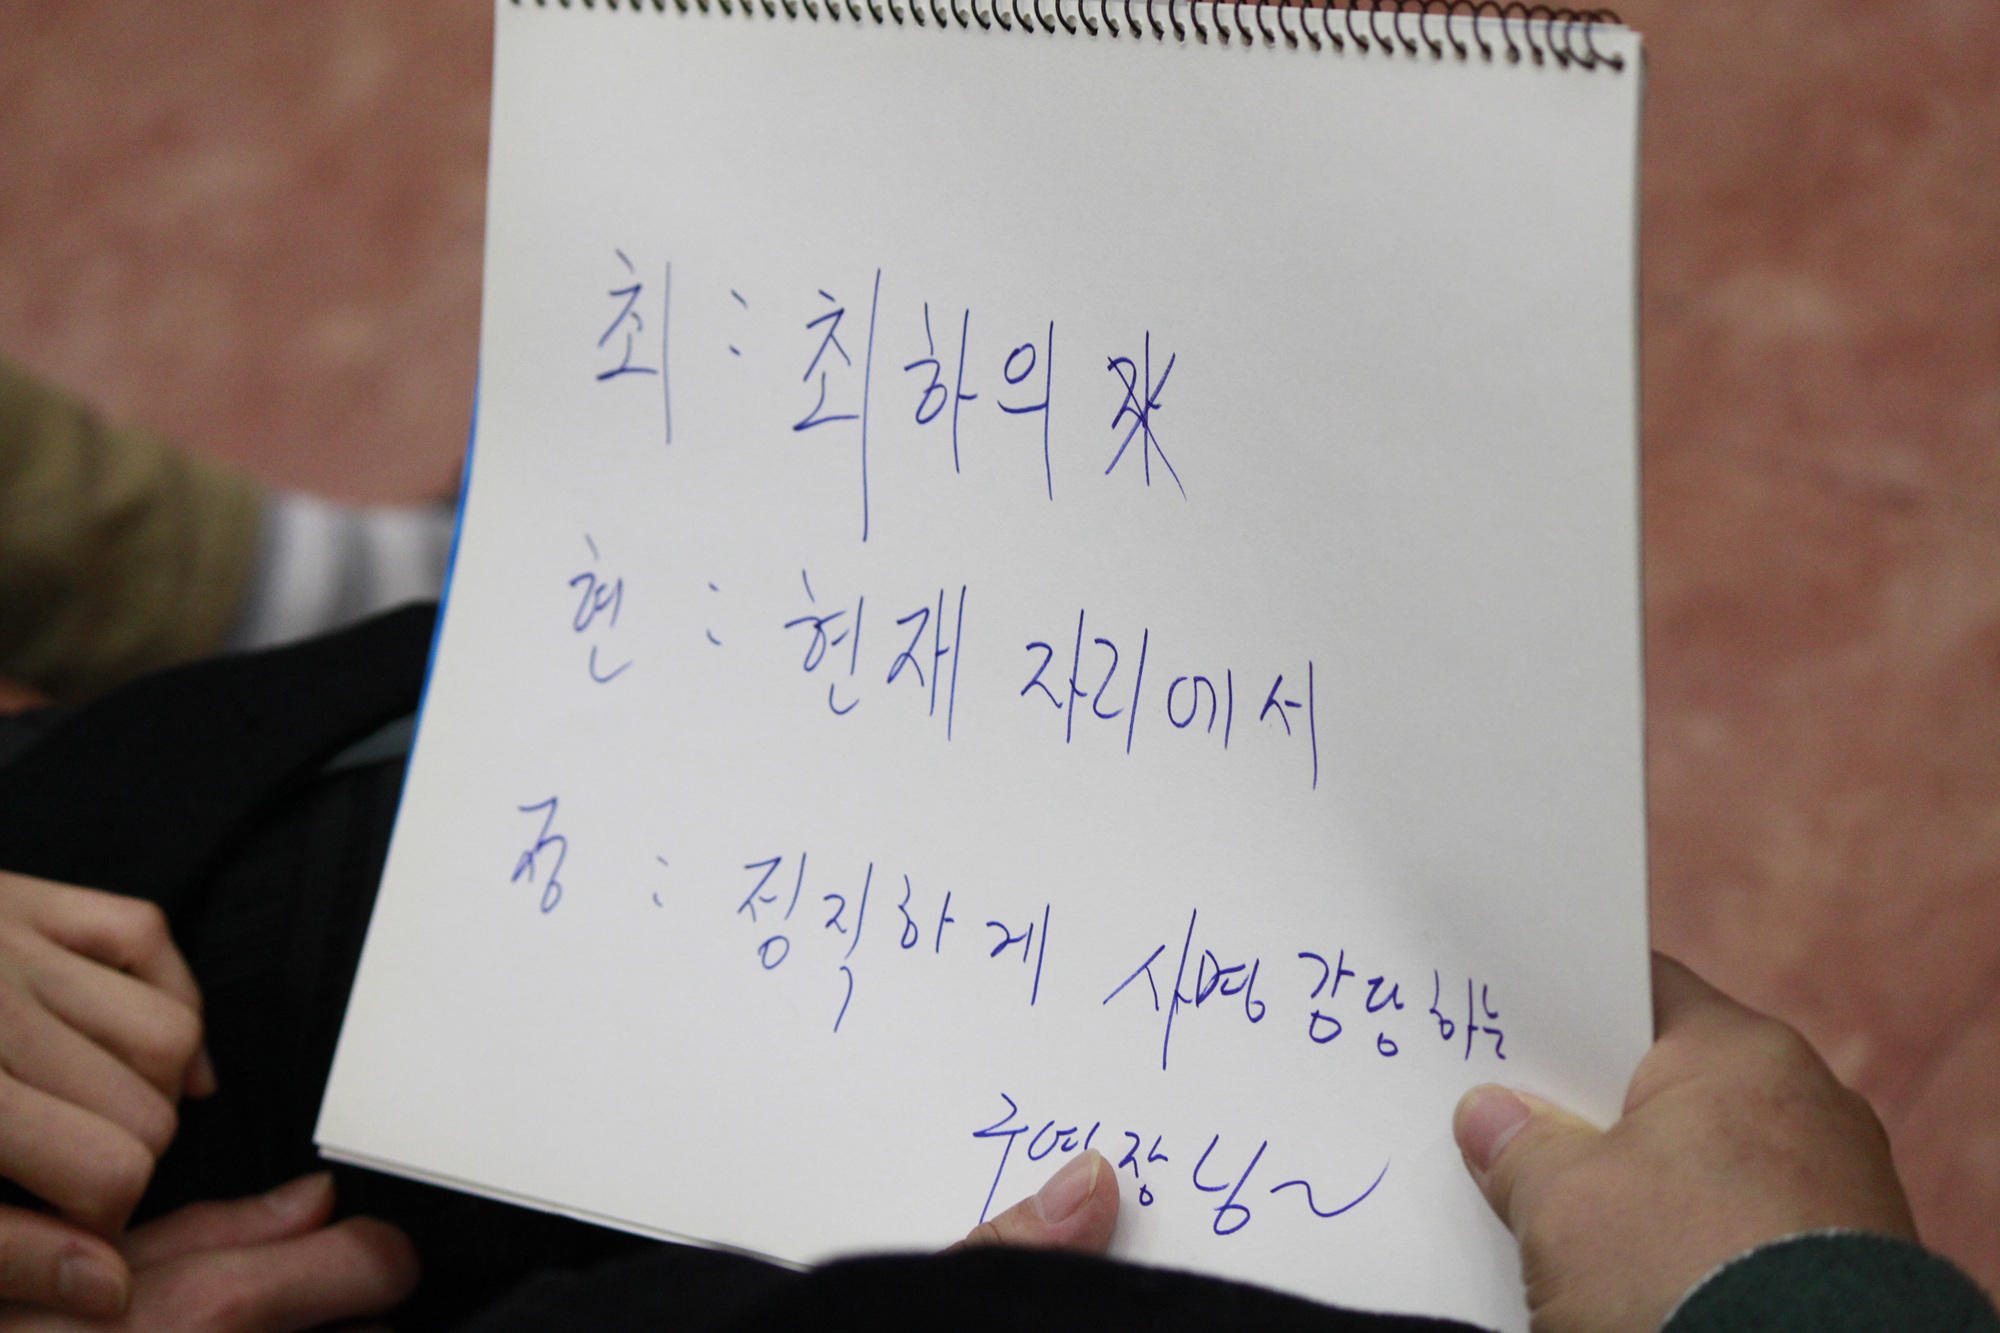 최 : 최하의
현 : 현재 자리에서
중 : 정직하게 사명 감당하는
장님~